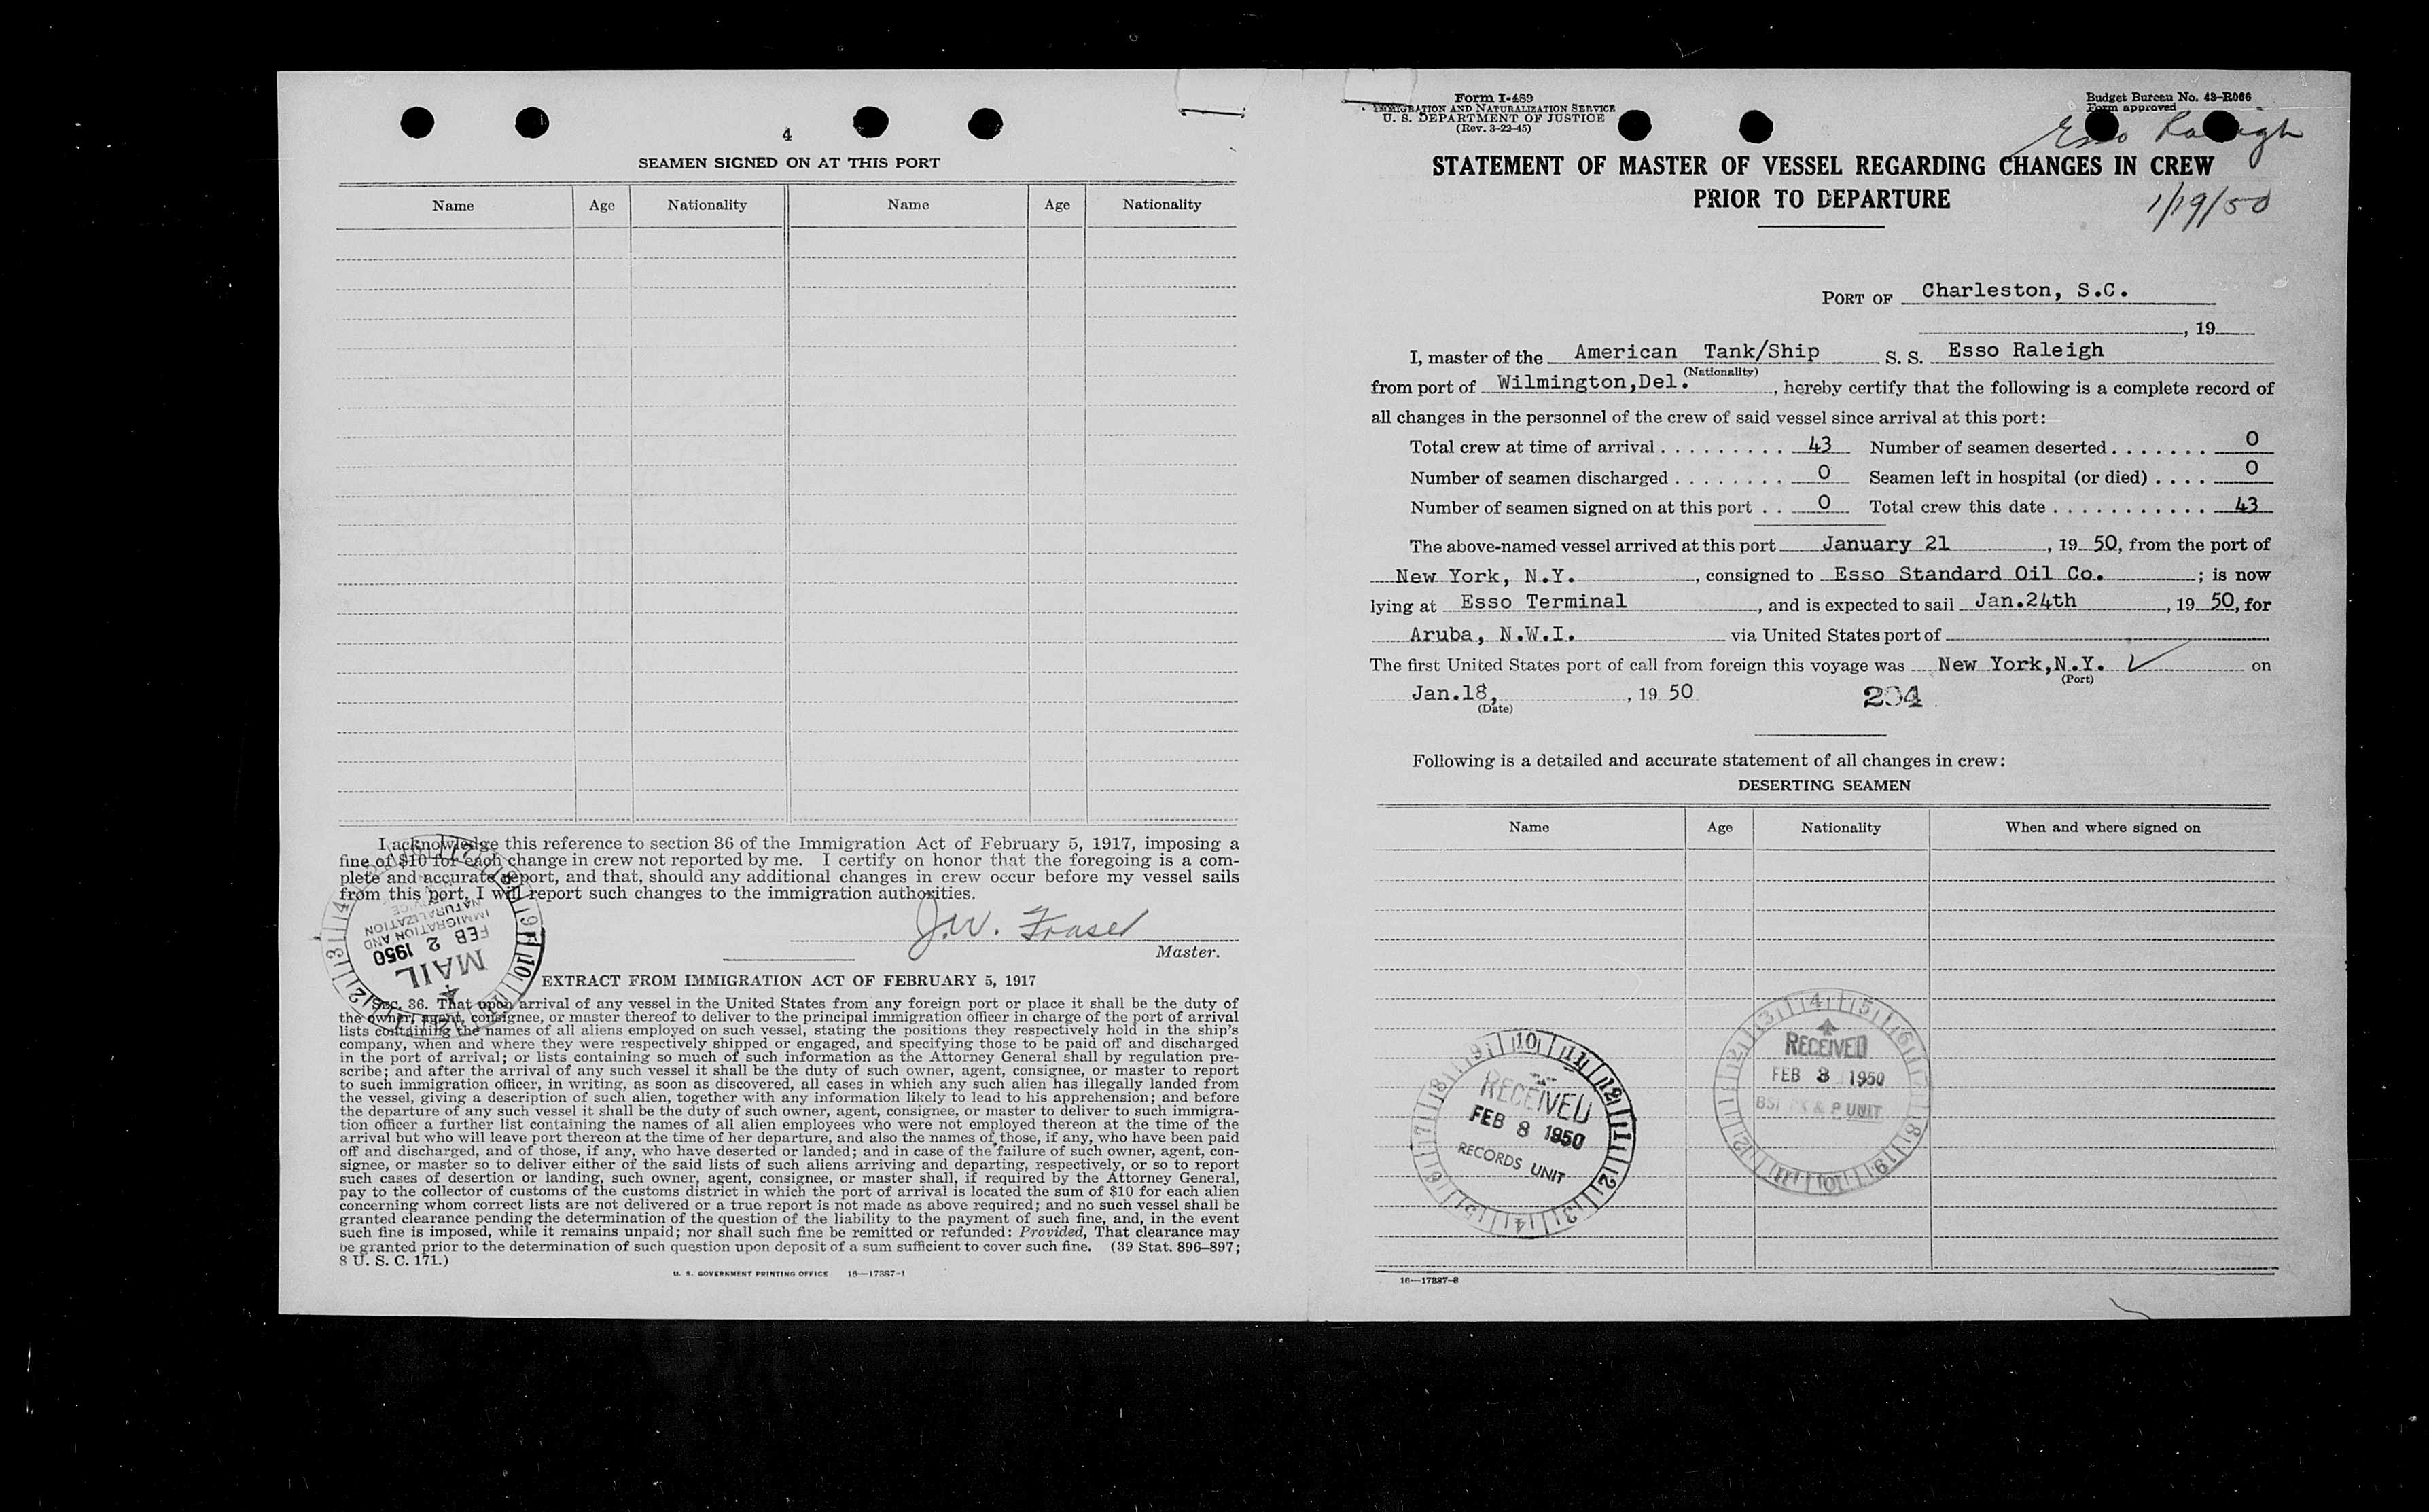 4
SEAMEN SIGNED ON AT THIS PORT
Name Age Nationality Name Age Nationality
I acknowledge this reference to section 36 of the Immigration Act of February 5, 1917, imposing a
fine of $10 for each change in crew not reported by me. I certify on honor that the foregoing is a com-
plete and accurate report, and that, should any additional changes in crew occur before my vessel sails
from this port, I will report such changes to the immigration authorities.
J.W. Fraser
Master.
IMMIGRATION AND
NATURALIZATION
FEB 2 1950
MAIL
EXTRACT FROM IMMIGRATION ACT OF FEBRUARY 5, 1917
Sec. 36. That upon arrival of any vessel in the United States from any foreign port or place it shall be the duty of
the owner, agent, consignee, or master thereof to deliver to the principal immigration officer in charge of the port of arrival
lists containing the names of all aliens employed on such vessel, stating the positions they respectively hold in the ship's
company, when and where they were respectively shipped or engaged, and specifying those to be paid off and discharged
in the port of arrival; or lists containing so much of such information as the Attorney General shall by regulation pre-
scribe; and after the arrival of any such vessel it shall be the duty of such owner, agent, consignee, or master to report
to such immigration officer, in writing, as soon as discovered, all cases in which any such alien has illegally landed from
the vessel, giving a description of such alien, together with any information likely to lead to his apprehension; and before
the departure of any such vessel it shall be the duty of such owner, agent, consignee, or master to deliver to such immigra-
tion officer a further list containing the names of all alien employees who were not employed thereon at the time of the
arrival but who will leave port thereon at the time of her departure, and also the names of those, if any, who have been paid
off and discharged, and of those, if any, who have deserted or landed; and in case of the failure of such owner, agent, con-
signee, or master so to deliver either of the said lists of such aliens arriving and departing, respectively, or so to report
such cases of desertion or landing, such owner, agent, consignee, or master shall, if required by the Attorney General,
pay to the collector of customs of the customs district in which the port of arrival is located the sum of $10 for each alien
concerning whom correct lists are not delivered or a true report is not made as above required; and no such vessel shall be
granted clearance pending the determination of the question of the liability to the payment of such fine, and, in the event
such fine is imposed, while it remains unpaid; nor shall such fine be remitted or refunded: Provided, That clearance may
be granted prior to the determination of such question upon deposit of a sum sufficient to cover such fine. (39 Stat. 896–897;
8 U. S. C. 171.)
U. S. GOVERNMENT PRINTING OFFICE 16—17887-1
Form I-489
IMMIGRATION AND NATURALIZATION SERVICE
U. S. DEPARTMENT OF JUSTICE
(Rev. 3-22-45)
Budget Bureau No. 43-R066
Form approved
Esso Raleigh
STATEMENT OF MASTER OF VESSEL REGARDING CHANGES IN CREW
PRIOR TO DEPARTURE
1/19/50
PORT OF Charleston, S.C.
, 19
I, master of the American Tank/Ship S. S. Esso Raleigh
(Nationality)
from port of Wilmington,Del. , hereby certify that the following is a complete record of
all changes in the personnel of the crew of said vessel since arrival at this port:
Total crew at time of arrival . . . . . . . . . 43 Number of seamen deserted . . . . . . . 0
Number of seamen discharged . . . . . . . . 0 Seamen left in hospital (or died) . . . . 0
Number of seamen signed on at this port . . 0 Total crew this date . . . . . . . . . . . . 43
The above-named vessel arrived at this port January 21 , 19 50, from the port of
New York, N.Y. , consigned to Esso Standard Oil Co. ; is now
lying at Esso Terminal , and is expected to sail Jan.24th , 19 50, for
Aruba, N.W.I. via United States port of
The first United States port of call from foreign this voyage was New York,N.Y. ✓ on
(Port)
Jan.18, , 19 50 204
(Date)
Following is a detailed and accurate statement of all changes in crew:
DESERTING SEAMEN
Name Age Nationality When and where signed on
RECEIVED
FEB 8 1950
RECORDS UNIT
RECEIVED
FEB 3 1950
& P UNIT
16—17887-3